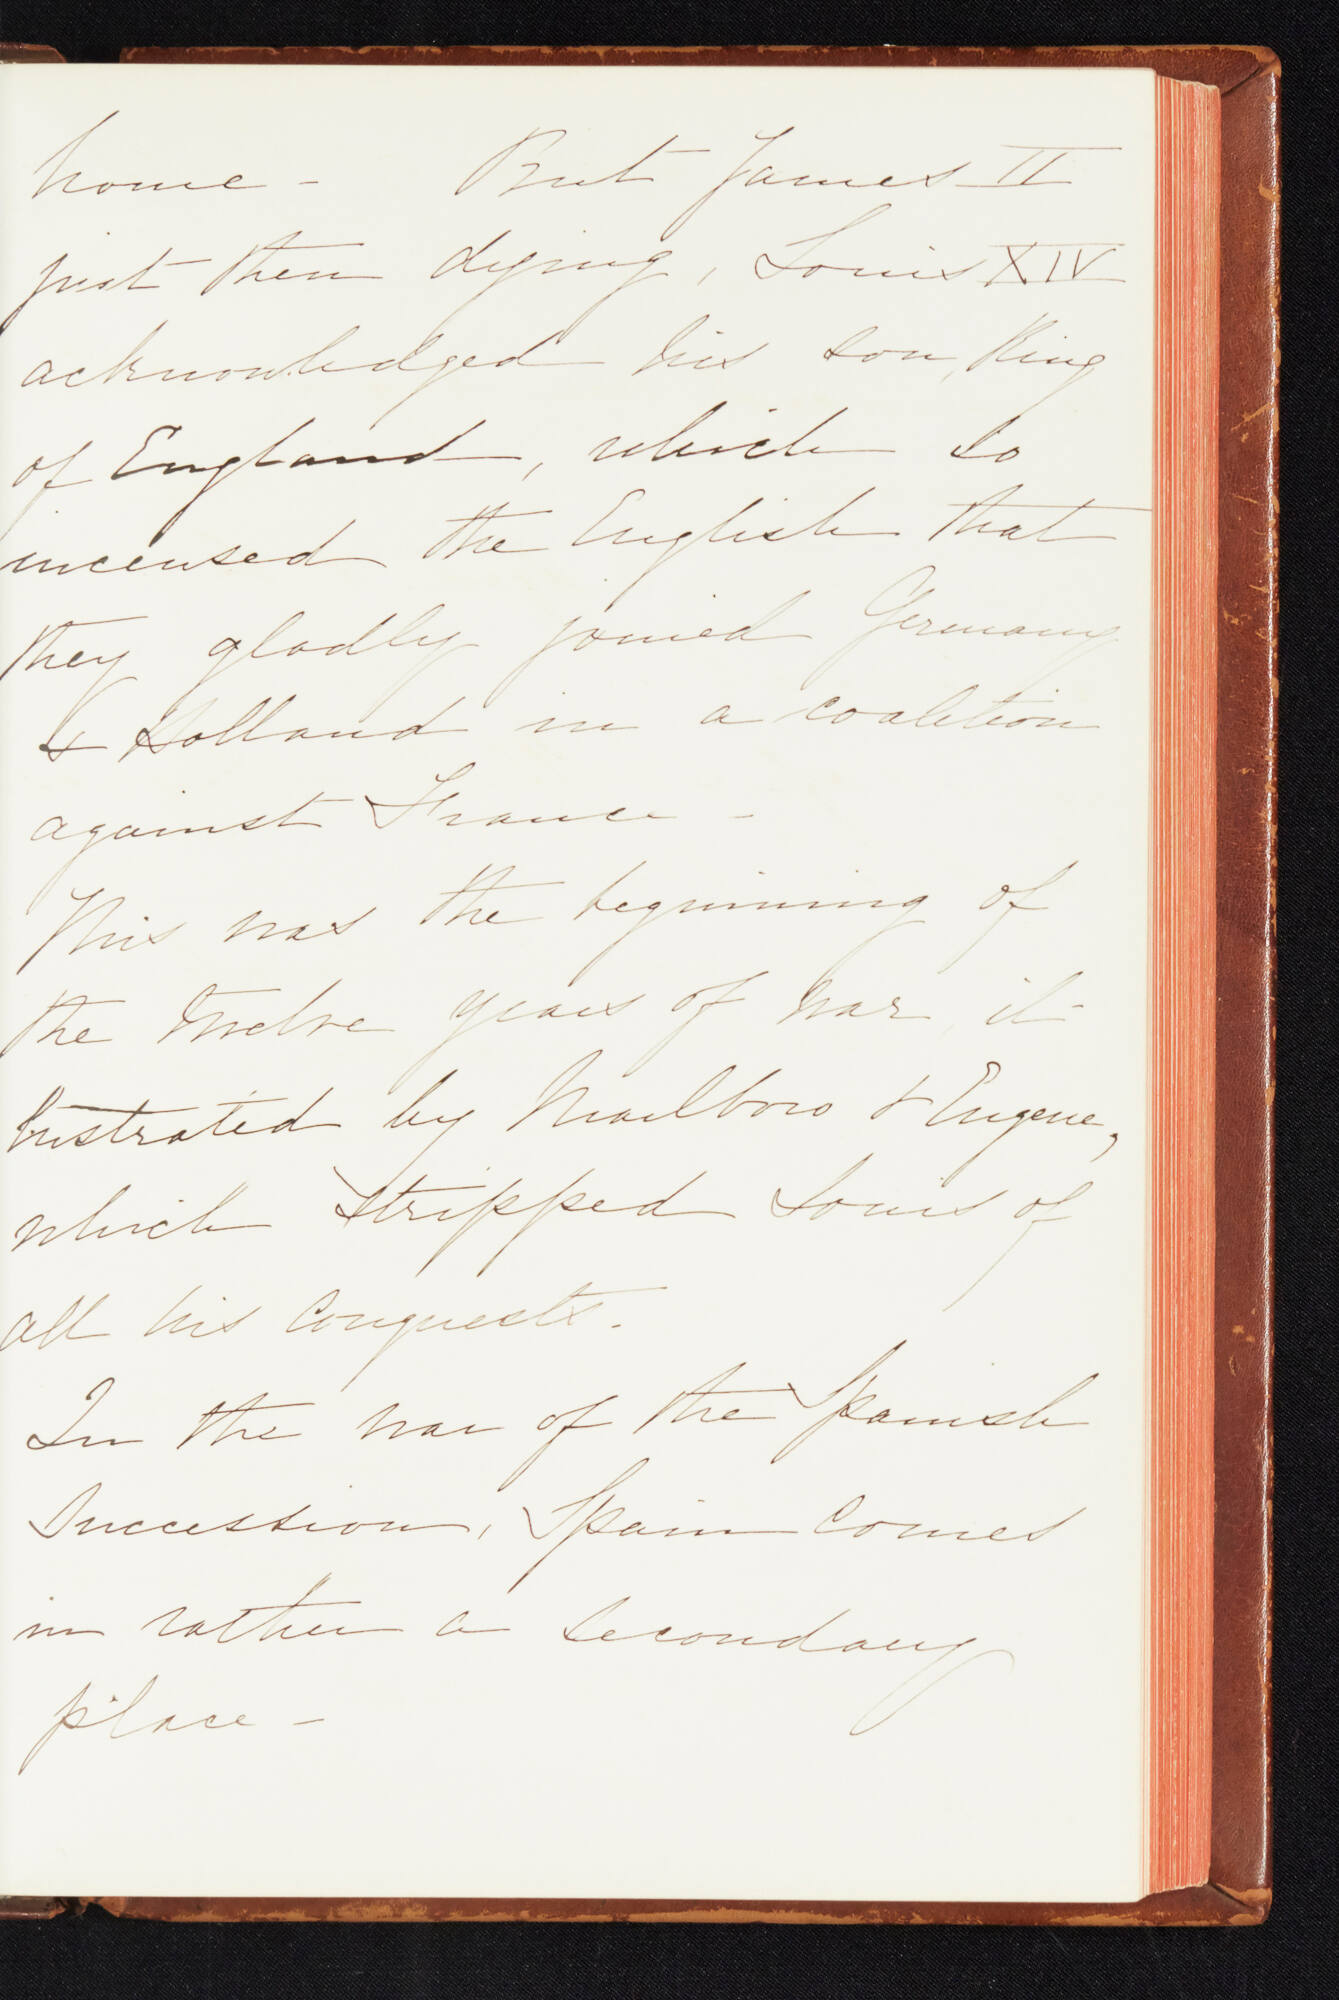 home - But James II
just then dying, Louis XIV
acknowledged his son, King
of England, which so
incensed the English that
they gladly joined Germany
& Holland in a coalition
against France -
This was the beginning of
the twelve years of war, il-
lustrated by Marlboro & Eugene,
which stripped Louis of
all his conquests.
In the war of the Spanish
Succession, Spain comes
in rather a secondary
place -